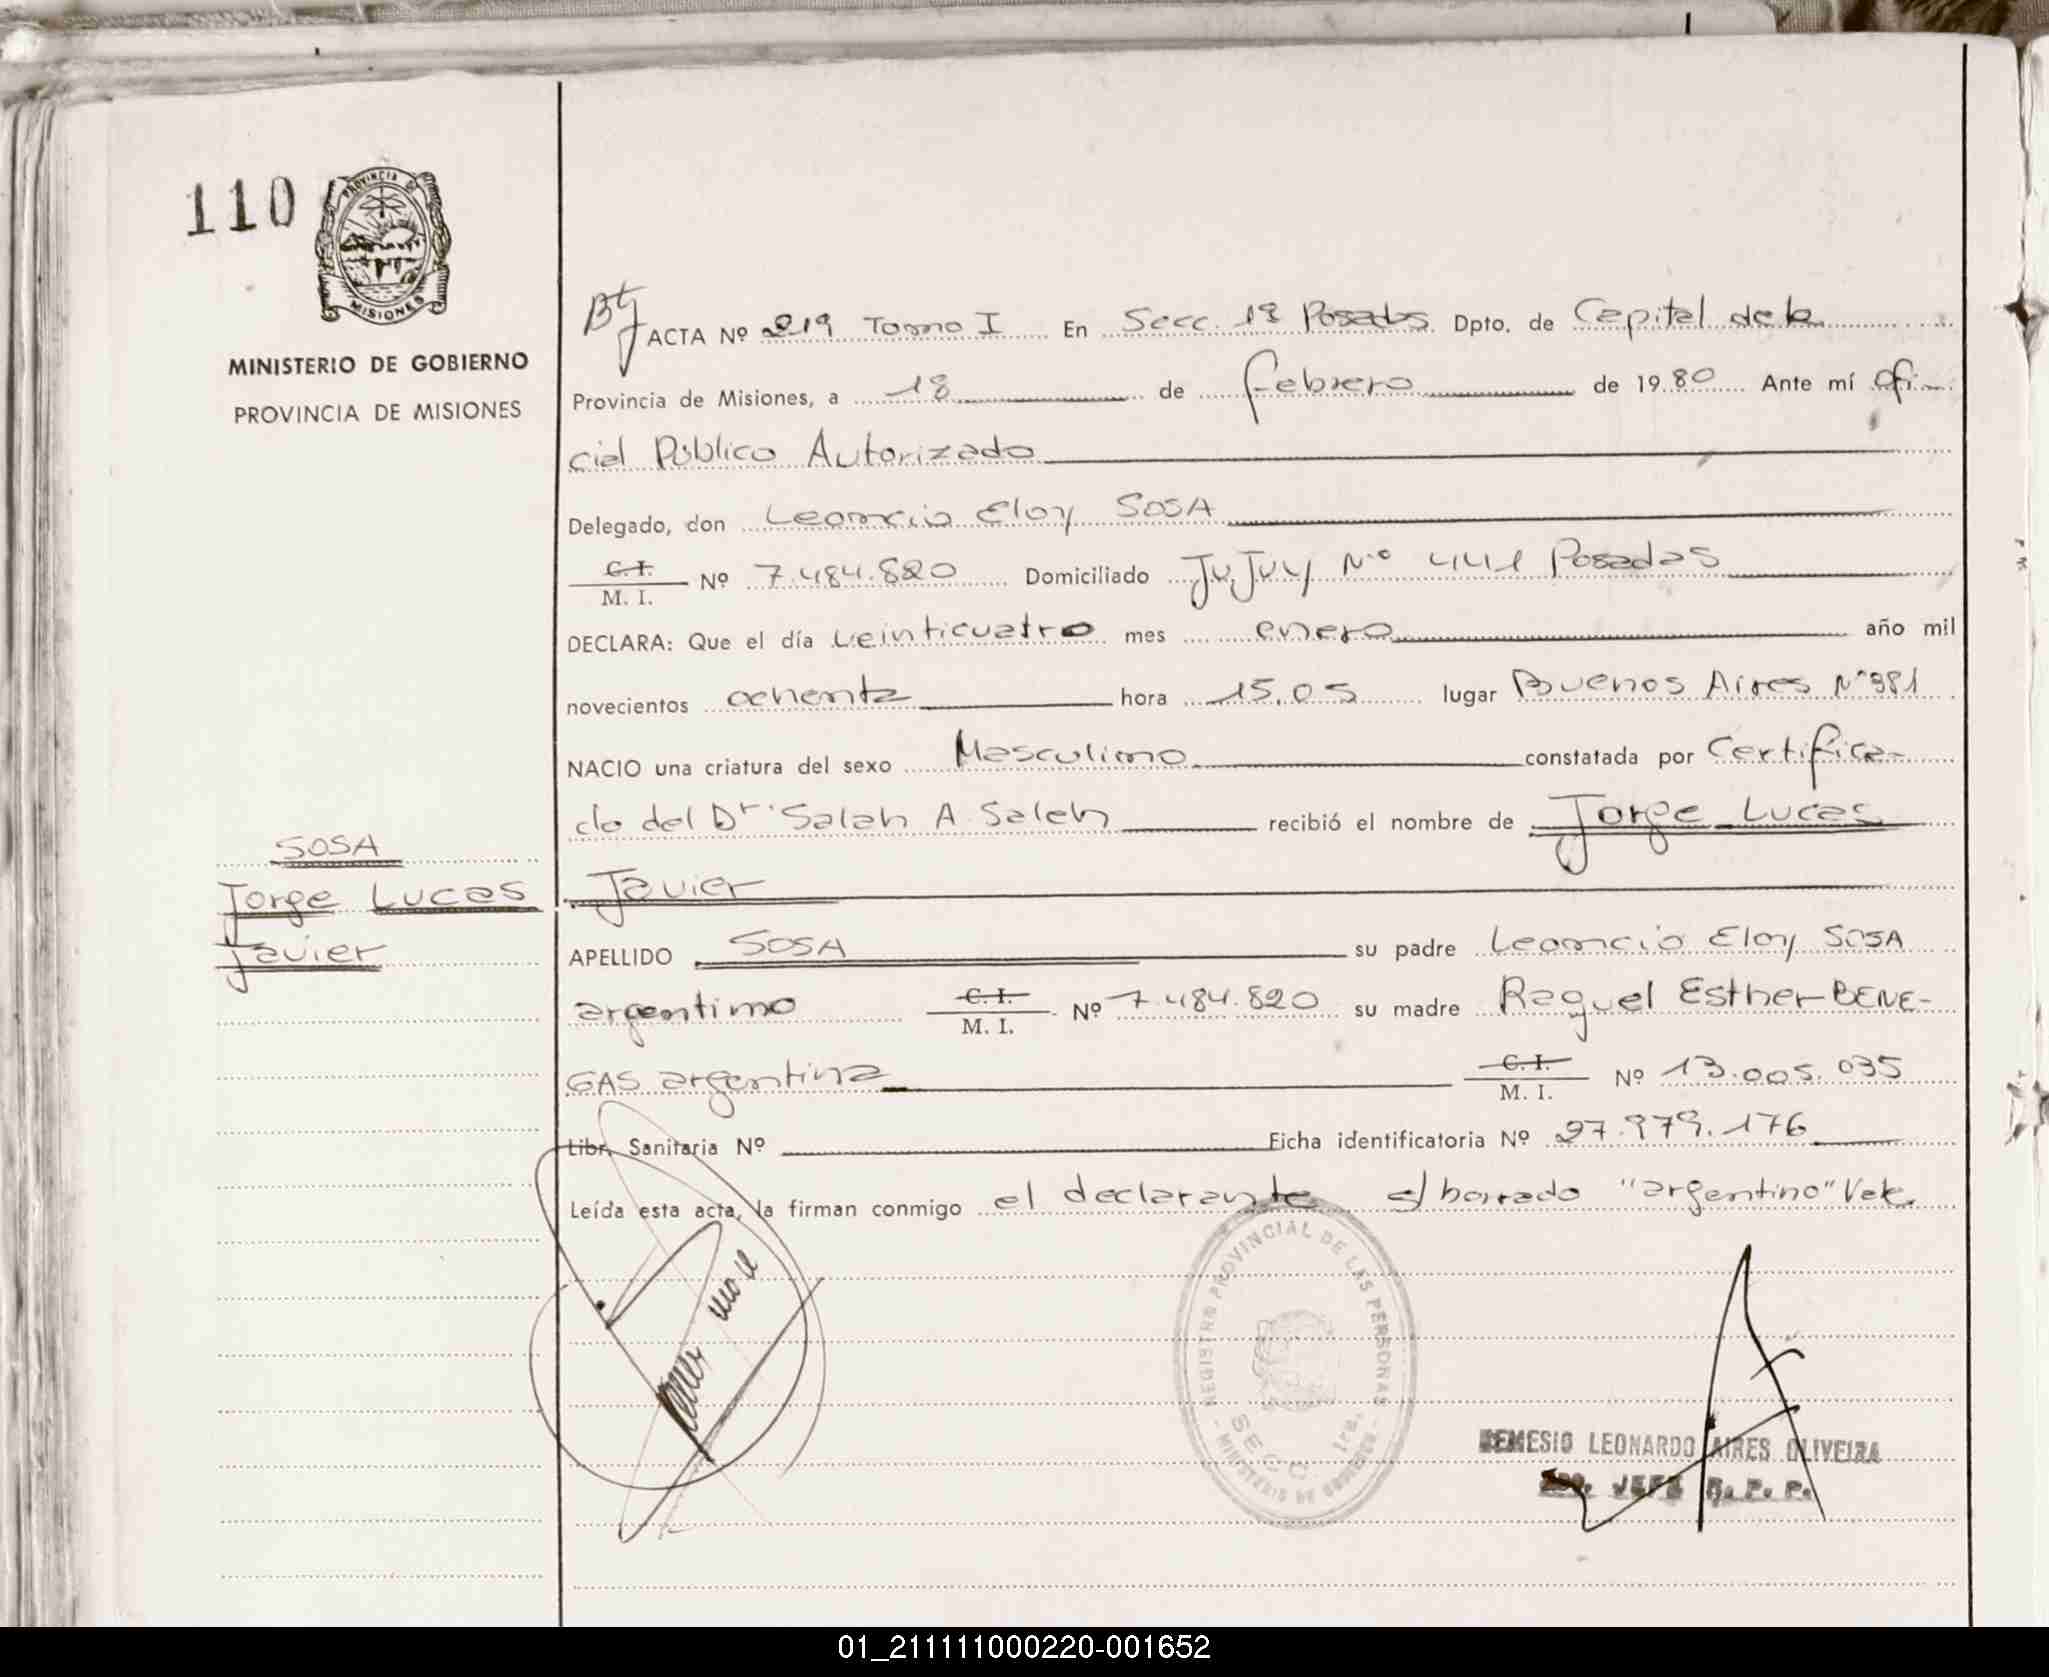 110
PROVINCIA DE
MISIONES
MINISTERIO DE GOBIERNO
PROVINCIA DE MISIONES
SOSA
Jorge Lucas
Javier
ACTA Nº 219 Tomo I En Secc. 1ª Posadas Dpto. de Capital de la
Provincia de Misiones, a 18 de febrero de 1980 Ante mí Ofi-
cial Público Autorizado
Delegado, don Leoncio Eloy SOSA
C. I.
M. I. Nº 7.484.820 Domiciliado JuJuy Nº 441 Posadas
DECLARA: Que el día veinticuatro mes enero año mil
novecientos ochenta hora 15,05 lugar Buenos Aires Nº 381
NACIO una criatura del sexo Masculino constatada por Certifica-
do del Dr. Salah A. Saleh recibió el nombre de Jorge Lucas
Javier
APELLIDO SOSA su padre Leoncio Eloy SOSA
argentino C. I.
M. I. Nº 7.484.820 su madre Raquel Esther BENE-
GAS argentina C. I.
M. I. Nº 13.005.035
Libr. Sanitaria Nº Ficha identificatoria Nº 27.979.176
Leída esta acta, la firman conmigo el declarante s/borrado "argentino" Vale.
REGISTRO PROVINCIAL DE LAS PERSONAS
SECC. 1ra.
- MINISTERIO DE GOBIERNO -
NEMESIO LEONARDO AIRES OLIVEIRA
JEFE R. P. P.
01_211111000220-001652